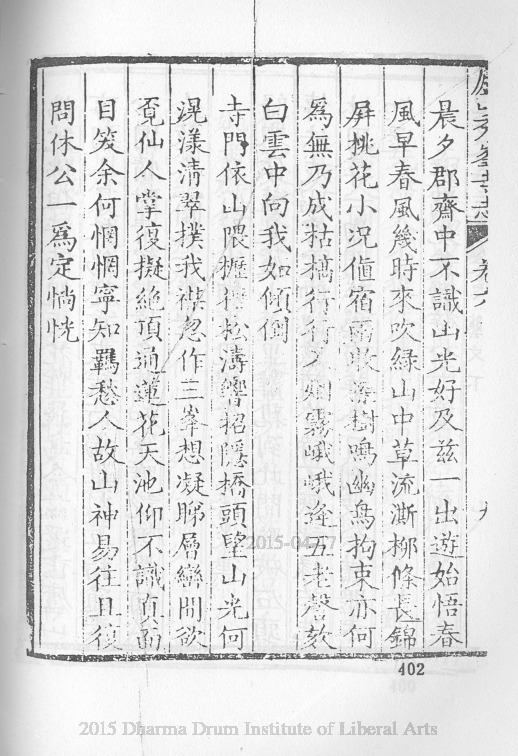 晨夕郡齋中不識山光好及兹一出遊始悟春
風早春風幾時來吹緑山中草流澌柳條長錦
屏桃花小況值宿雨收深樹鳴幽鳥拘束亦何
爲無乃成枯槁行行入烟霧峨峨逢五老謦欬
白雲中向我如傾倒
寺門依山隈櫪松濤響招隱橋頭望山光何
滉漾清翠撲我襟忽作三峯想凝睇層巒間欲
覓仙人掌復擬絶頂通蓮花天池仰不識真面
目笑余何惘惘寧知羈愁人故山神易往且復
問休公一爲定惝恍
卷六
九
402
2015-04-07
2015 Dharma Drum Institute of Liberal Arts